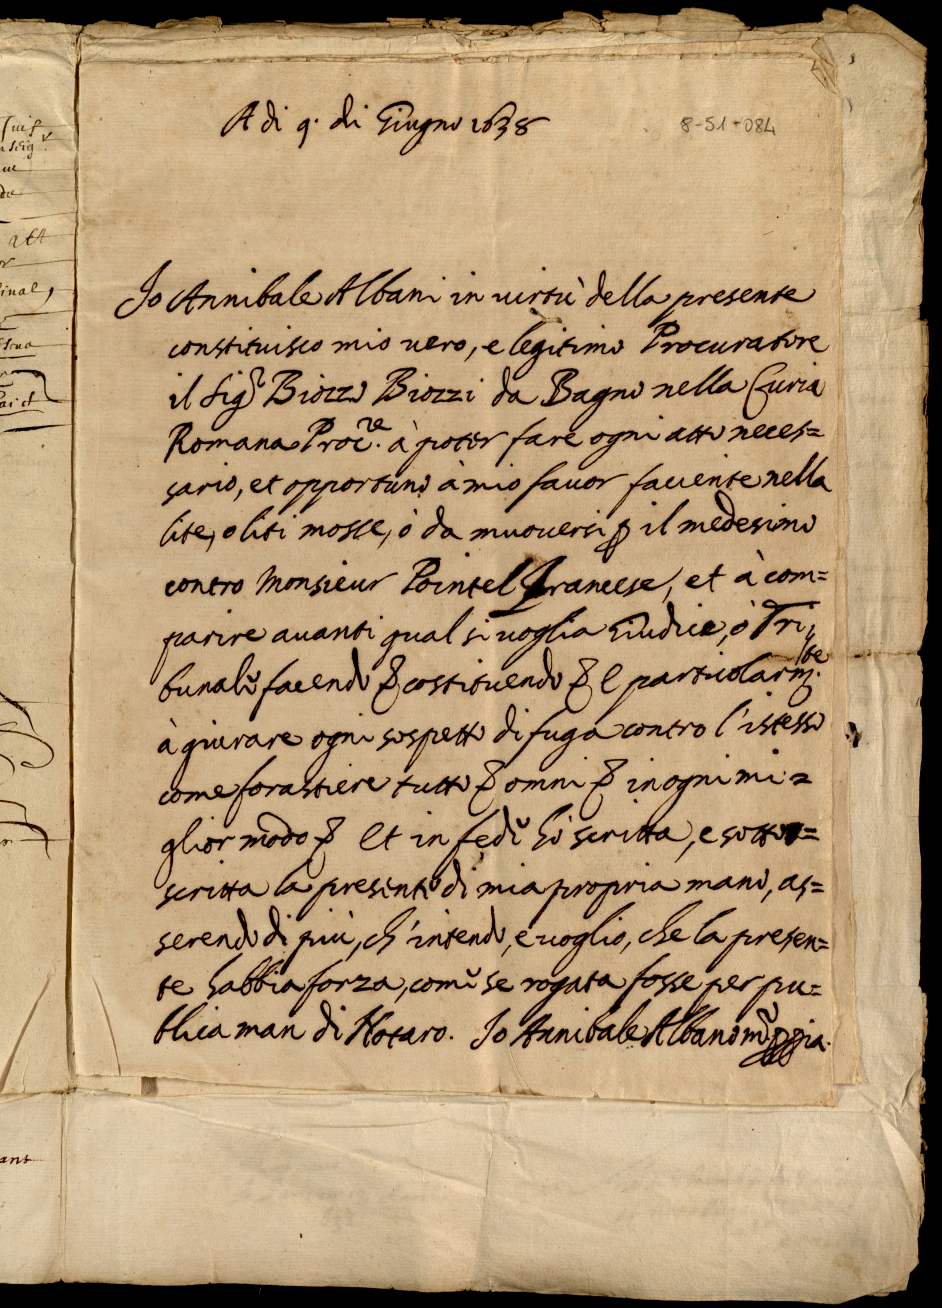 A di 9. di Giugno 1638
8-51-084
Io Annibale Albani in uirtù della presente
constituisco mio uero, e legitimo Procuratore
il Sig.r Biozzo Biozzi da Bagno nella Curia
Romana Proc.re à poter fare ogni atto neces=
sario, et opportuno à mio fauor faciente nella
lite, o liti mosse, ò da muouersi p il medesimo
contro Monsieur Pointel francese, et à com=
parire auanti qual si uoglia Giudice, ò Tri,,
bunale facendo & costituendo & e particolarm.te
à giurare ogni sospetto di fuga contro l'istesso
come forastiere tutto & omni & in ogni mi=
glior modo & Et in fede hò scritta, e sotto=
scritta la presente di mia propria mano, as=
serendo di più, ch'intendo, e uoglio, che la presen=
te habbia forza, come se rogata fosse per pu=
blica man di Notaro. Io Annibale Albano mo ppia.